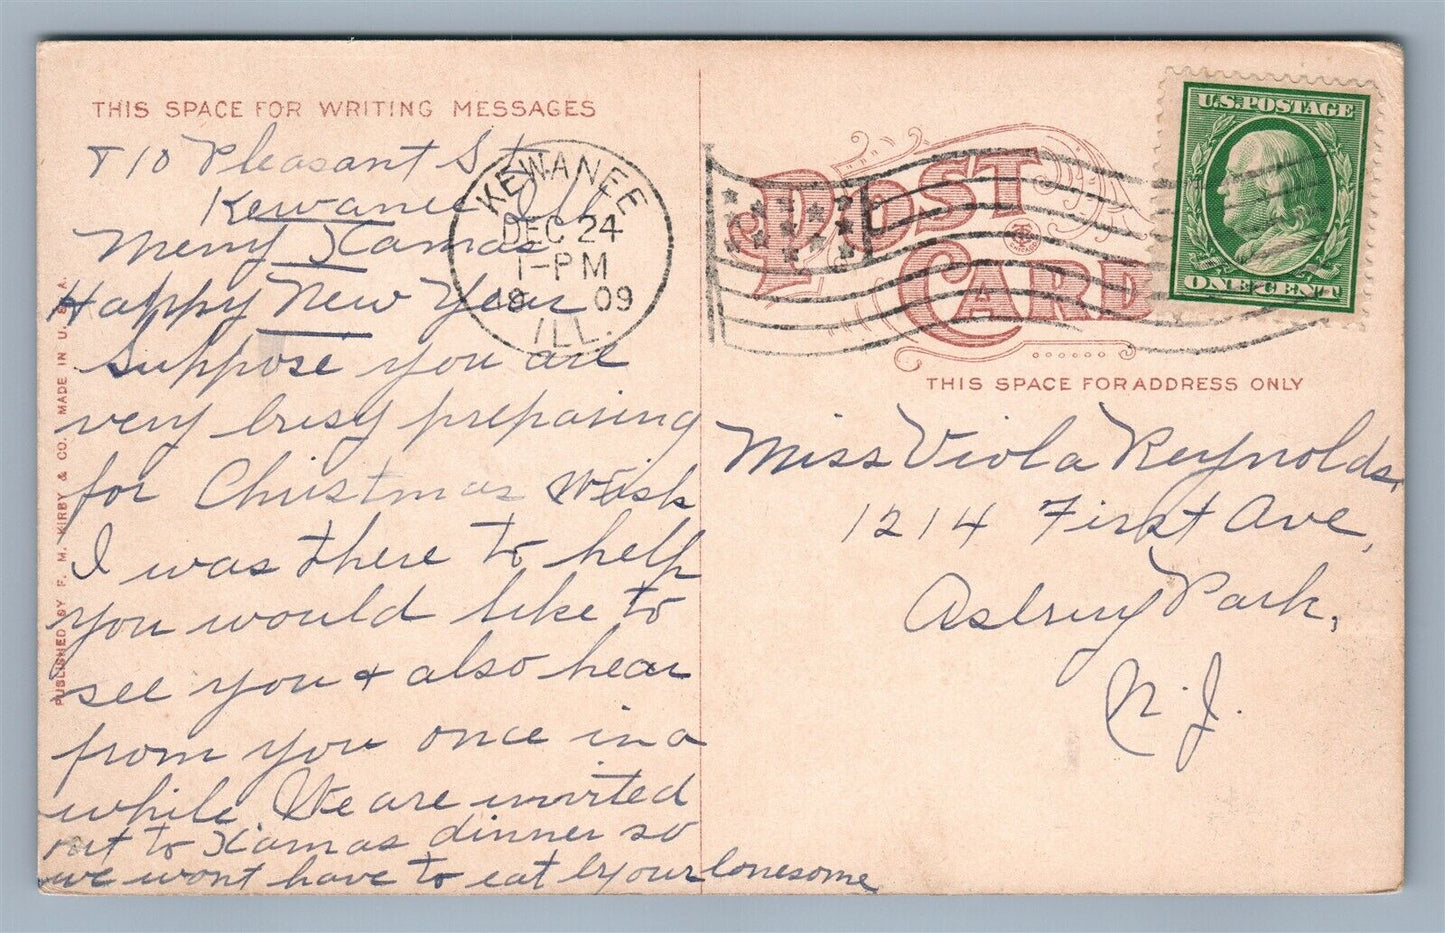 THIS SPACE FOR WRITING MESSAGES
710 Pleasant St
Kewanee Ill
Merry Xamas
Happy New Year
Suppose you are
very busy preparing
for Christmas Wish
I was there to help
you would like to
see you & also hear
from you once in a
while. We are invited
out to Xamas dinner so
we wont have to eat by our lonesome
PUBLISHED BY F. M. KIRBY & CO. MADE IN U. S. A.
KEWANEE
DEC 24
1-PM
1909
ILL.
POST
CARD
U.S. POSTAGE
ONE CENT
THIS SPACE FOR ADDRESS ONLY
Miss Viola Reynolds,
1214 First Ave,
Asbury Park,
N.J.